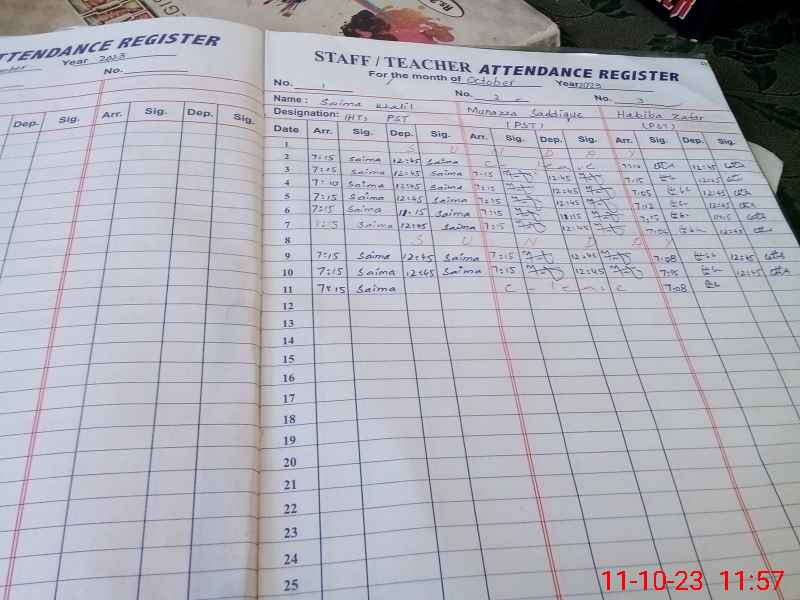 Rs.2
ATTENDANCE REGISTER
Year 2023
No.
Dep. Sig. Arr. Sig. Dep. Sig.
STAFF / TEACHER ATTENDANCE REGISTER
For the month of October Year 2023
No. 1 No. 2 No. 3
Name: Saima Khalil Munazza Saddique Habiba Zafar
Designation: (HT) PST (PST) (PST)
Date Arr. Sig. Dep. Sig. Arr. Sig. Dep. Sig. Arr. Sig. Dep. Sig.
1 S U N D A Y
2 7:15 Saima 12:45 Saima C - leave 12:45
3 7:15 Saima 12:45 Saima 7:15 12:45 7:15 12:45
4 7:10 Saima 12:45 Saima 7:15 12:45 7:05 12:45
5 7:15 Saima 12:45 Saima 7:15 12:45 7:12 12:45
6 7:15 Saima Saima 7:15 7:15
7 Saima 12:45 Saima 7:15 12:45 12:45
8 S U N D A Y
9 7:15 Saima 12:45 Saima 7:15 12:45 7:08 12:45
10 7:15 Saima 12:45 Saima 7:15 12:45 7:15 12:45
11 7:15 Saima C - leave 7:08
12
13
14
15
16
17
18
19
20
21
22
23
24
25
11-10-23 11:57